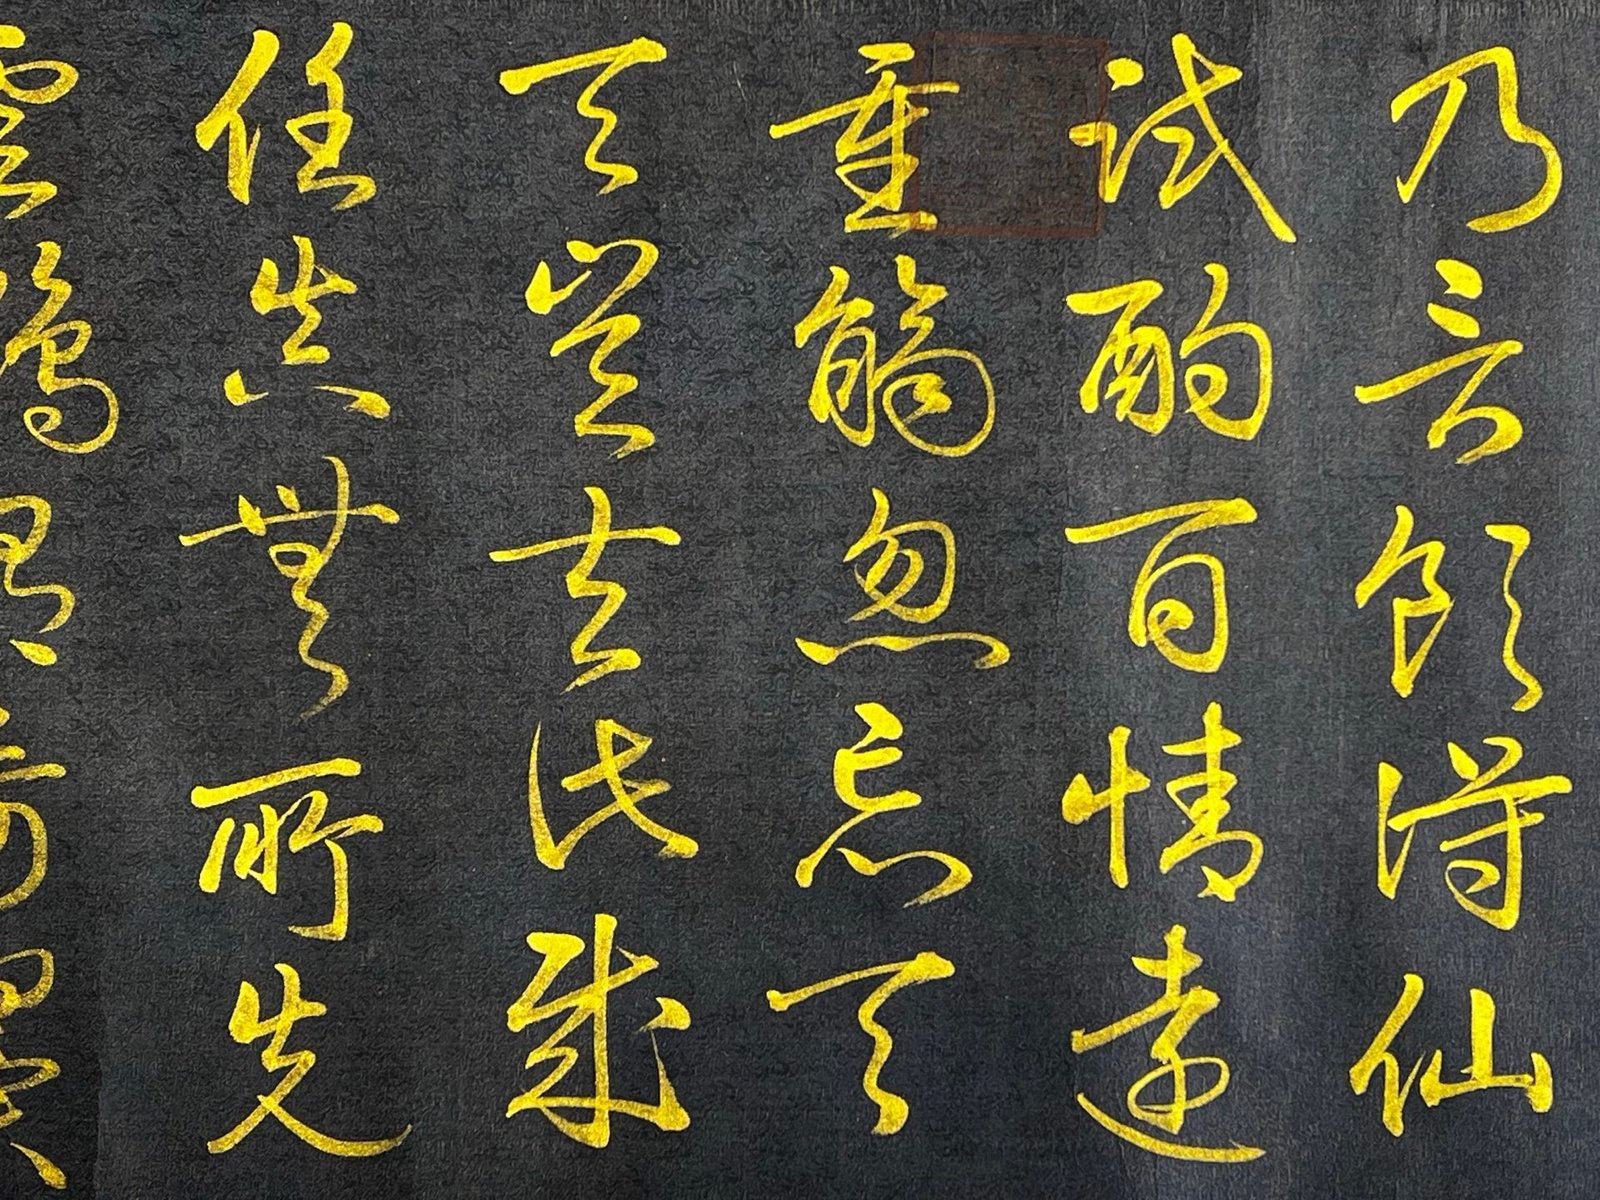 乃言飲得仙
試酌百情遠
重觴忽忘天
天豈去此哉
任真無所先
雲鶴有奇翼